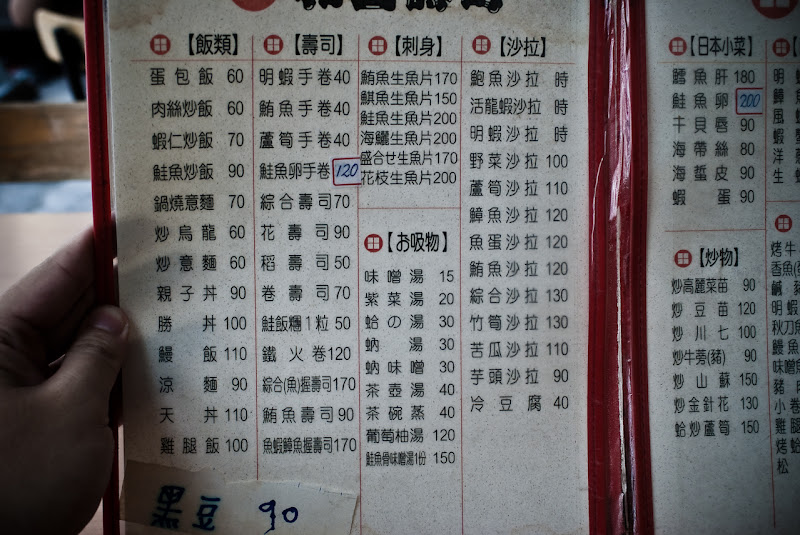 【飯類】
蛋包飯 60
肉絲炒飯 60
蝦仁炒飯 70
鮭魚炒飯 90
鍋燒意麵 70
炒烏龍 60
炒意麵 60
親子丼 90
勝丼 100
鰻飯 110
涼麵 90
天丼 110
雞腿飯 100
黑豆 90
【壽司】
明蝦手卷 40
鮪魚手卷 40
蘆筍手卷 40
鮭魚卵手卷 120
綜合壽司 70
花壽司 90
稻壽司 50
卷壽司 70
鮭飯糰1粒 50
鐵火卷 120
綜合(魚)握壽司 170
鮪魚壽司 90
魚蝦鱆魚握壽司 170
【刺身】
鮪魚生魚片 170
鮭魚生魚片 200
海鱺生魚片 200
盛合せ生魚片 170
花枝生魚片 200
【お吸物】
味噌湯 15
紫菜湯 20
蛤の湯 30
蚋湯 30
蚋味噌 30
茶壺湯 40
茶碗蒸 40
葡萄柚湯 120
鮭魚骨味噌湯1份 150
【沙拉】
鮑魚沙拉 時
活龍蝦沙拉 時
明蝦沙拉 時
野菜沙拉 100
蘆筍沙拉 110
鱆魚沙拉 120
魚蛋沙拉 120
鮪魚沙拉 120
綜合沙拉 130
竹筍沙拉 130
苦瓜沙拉 110
芋頭沙拉 90
冷豆腐 40
【日本小菜】
鱈魚肝 180
鮭魚卵 200
干貝唇 90
海帶絲 80
海蜇皮 90
蝦蛋 90
【炒物】
炒高麗菜苗 90
炒豆苗 120
炒川七 100
炒牛蒡(豬) 90
炒山蘇 150
炒金針花 130
蛤炒蘆筍 150